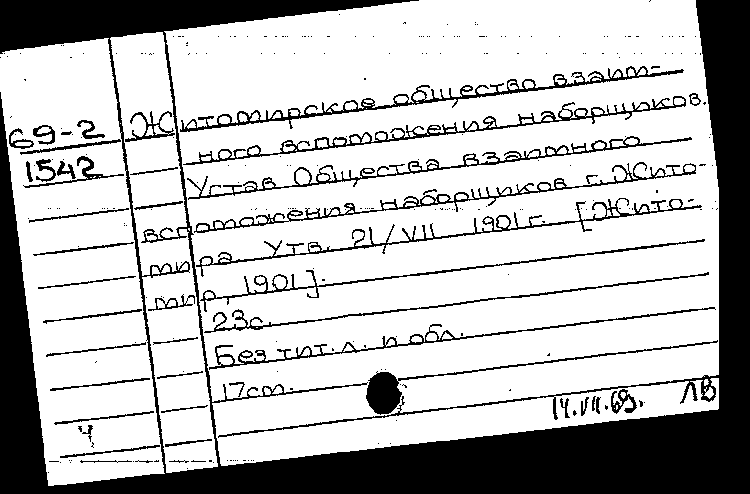 69-2
1542
Житомирское общество взаим-
ного вспоможения наборщиков.
Устав Общества взаимного
вспоможения наборщиков г. Жито-
мира. Утв. 21/VII 1901 г. [Жито-
мир, 1901].
23с.
Без тит. л. и обл.
17см.
14.VII.69. ЛВ
Ч